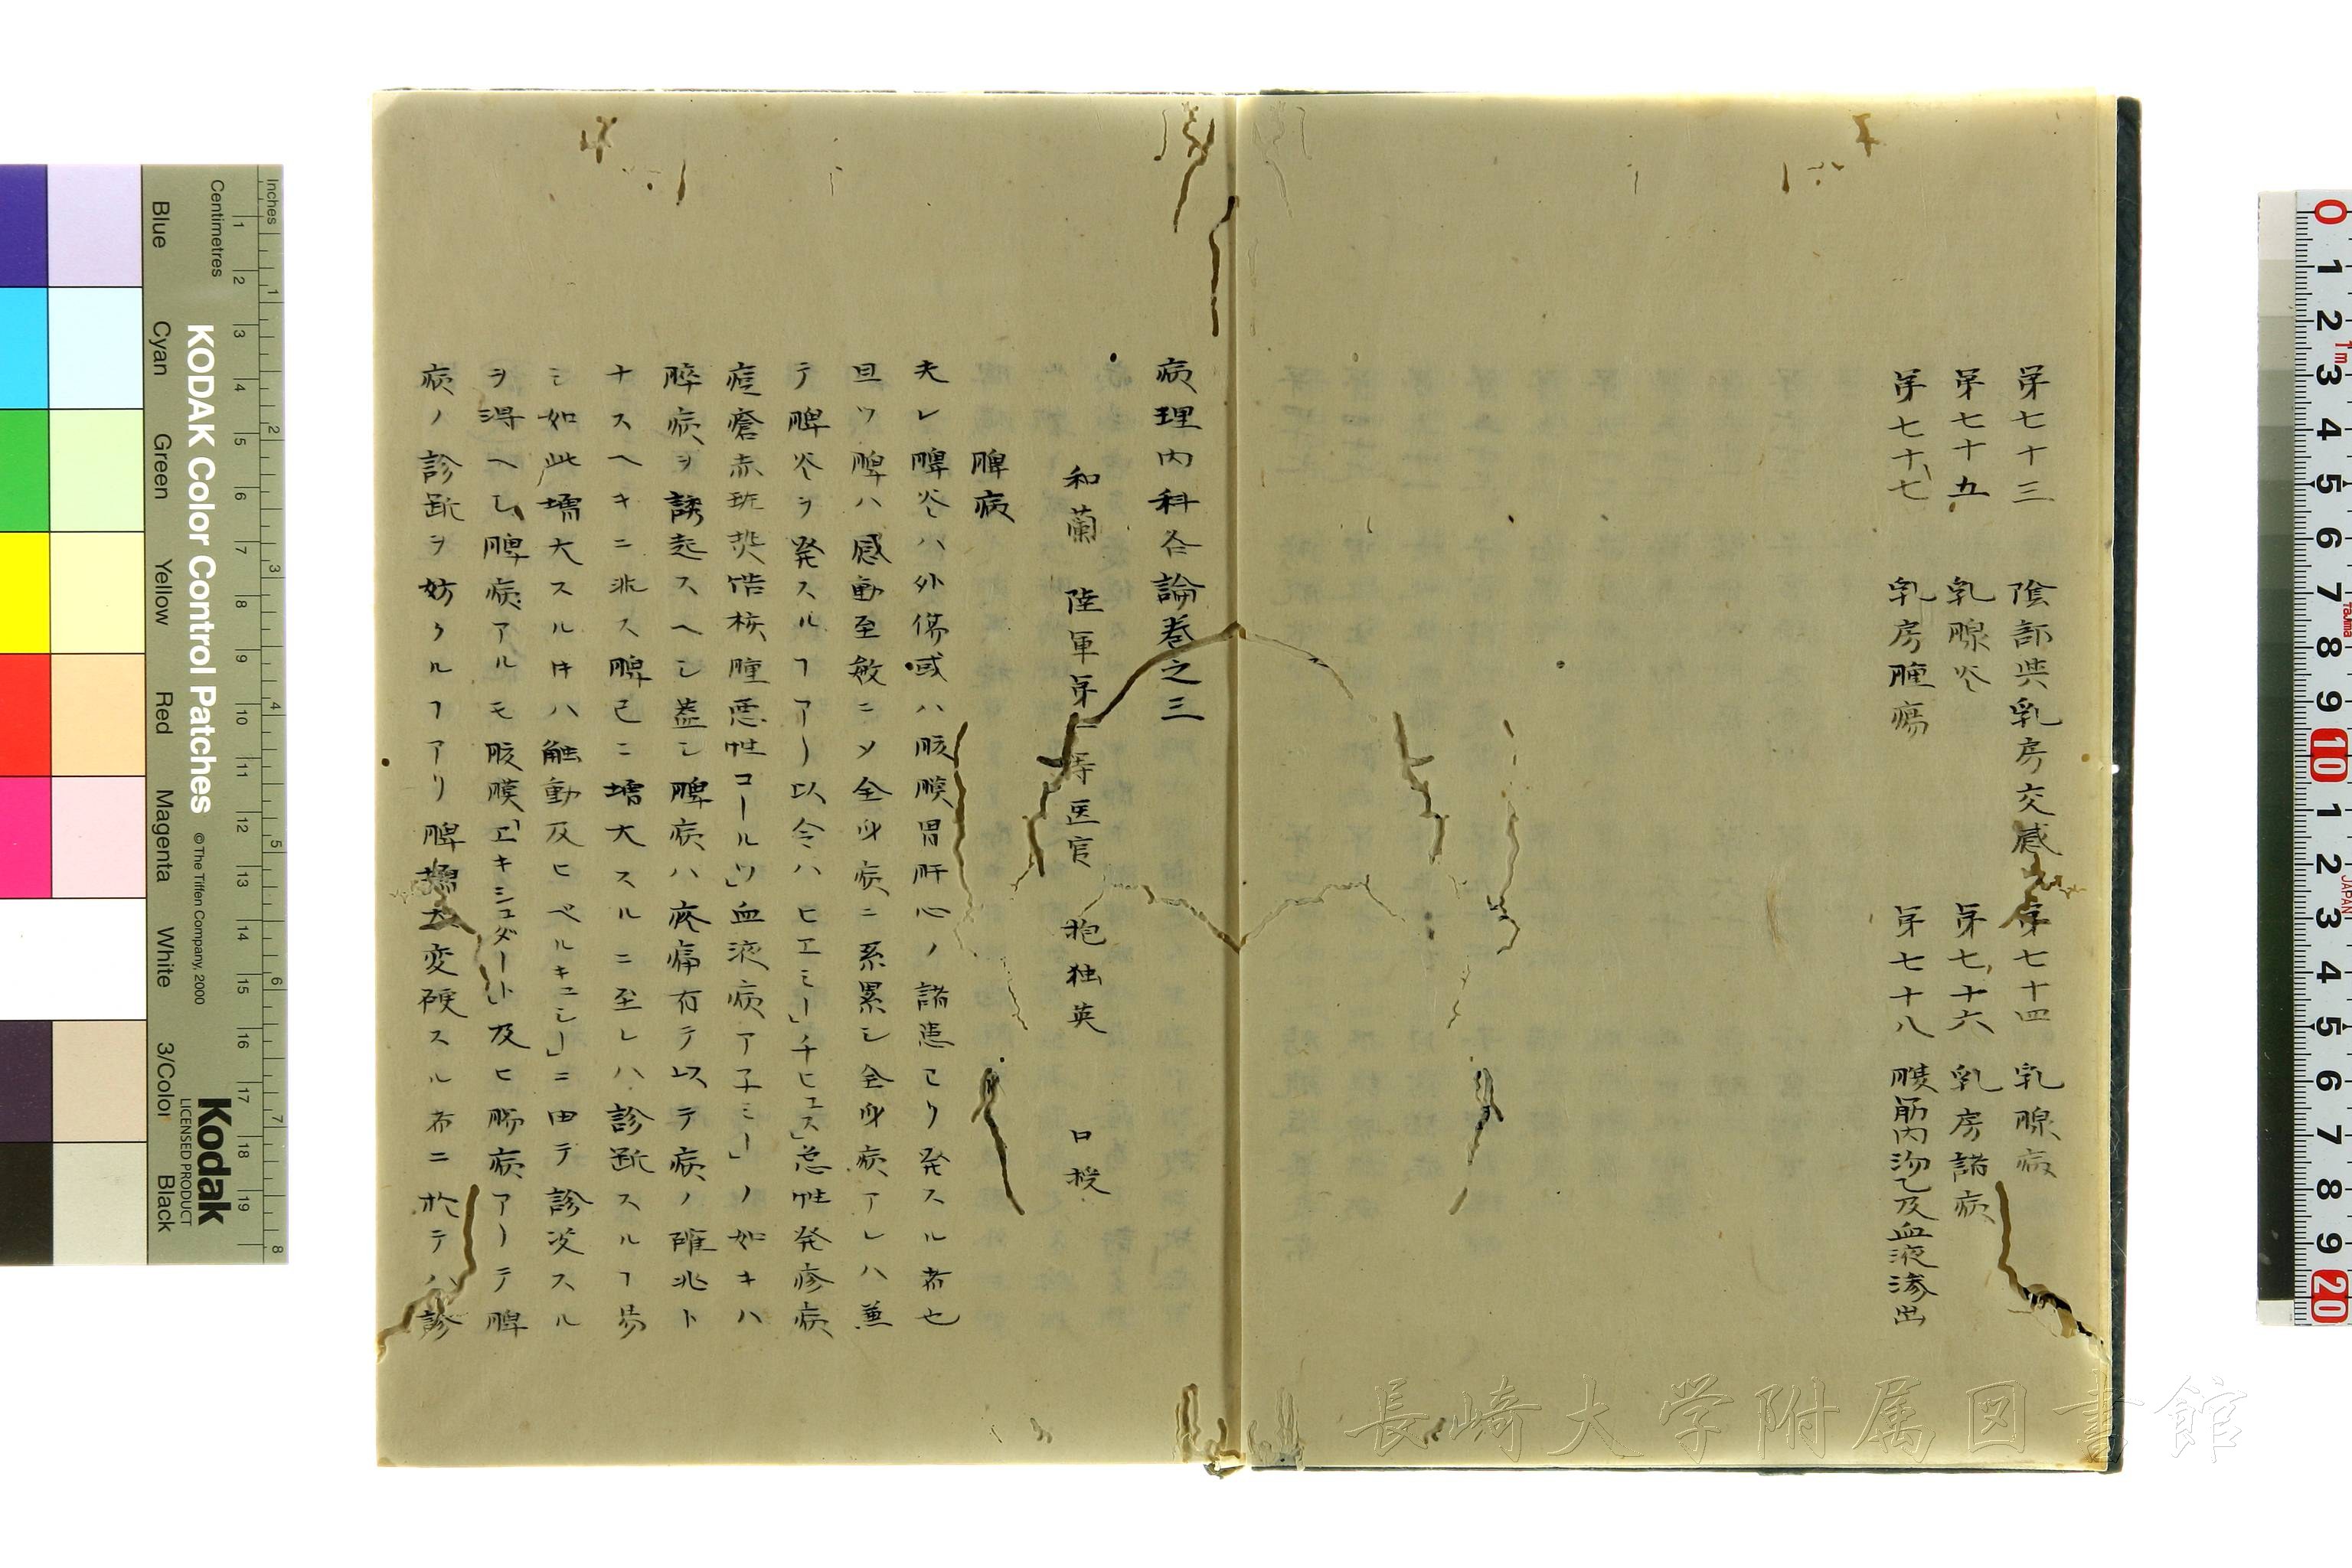 第七十三 陰部與乳房交感 第七十四 乳腺病
第七十五 乳腺炎 第七十六 乳房諸病
第七十七 乳房腫瘍 第七十八 腰筋内 及血液滲出
病理内科各論巻之三
和蘭 陸軍第一等医官 抱独英 口授
脾病
夫レ脾炎ハ外傷或ハ胘膜胃肝心ノ諸患ヨリ発スル者也
且ツ脾ハ感動至敏ニメ全身病ニ系累シ全身病アレハ兼
テ脾炎ヲ発スルヿアリ以令ハヒエミー」チヒュス」急性発疹病
痘瘡赤斑 結核腫悪性コールツ」血液病アネミー」ノ如キハ
脾病ヲ誘起スヘシ蓋シ脾病ハ疼痛有テ以テ病ノ確兆ト
ナスヘキニ非ス脾已ニ増大スルニ至レハ診断スルヿ易
シ如此増大スルキハ触動及ヒペルキュシー」ニ由テ診決スル
ヲ得ヘシ脾病アルモ胘膜「エキシュダート」及ヒ肠病アリテ脾
病ノ診断ヲ妨クルヿアリ脾 大変硬スル者ニ於テハ診
長崎大学附属図書館
KODAK Color Control Patches
© The Tiffen Company, 2000
Kodak
LICENSED PRODUCT
Inches
Centimetres
Blue
Cyan
Green
Yellow
Red
Magenta
White
3/Color
Black
1 2 3 4 5 6 7 8 9 10 11 12 13 14 15 16 17 18 19
1 2 3 4 5 6 7 8
0 1 2 3 4 5 6 7 8 9 10 1 2 3 4 5 6 7 8 9 20
JAPAN